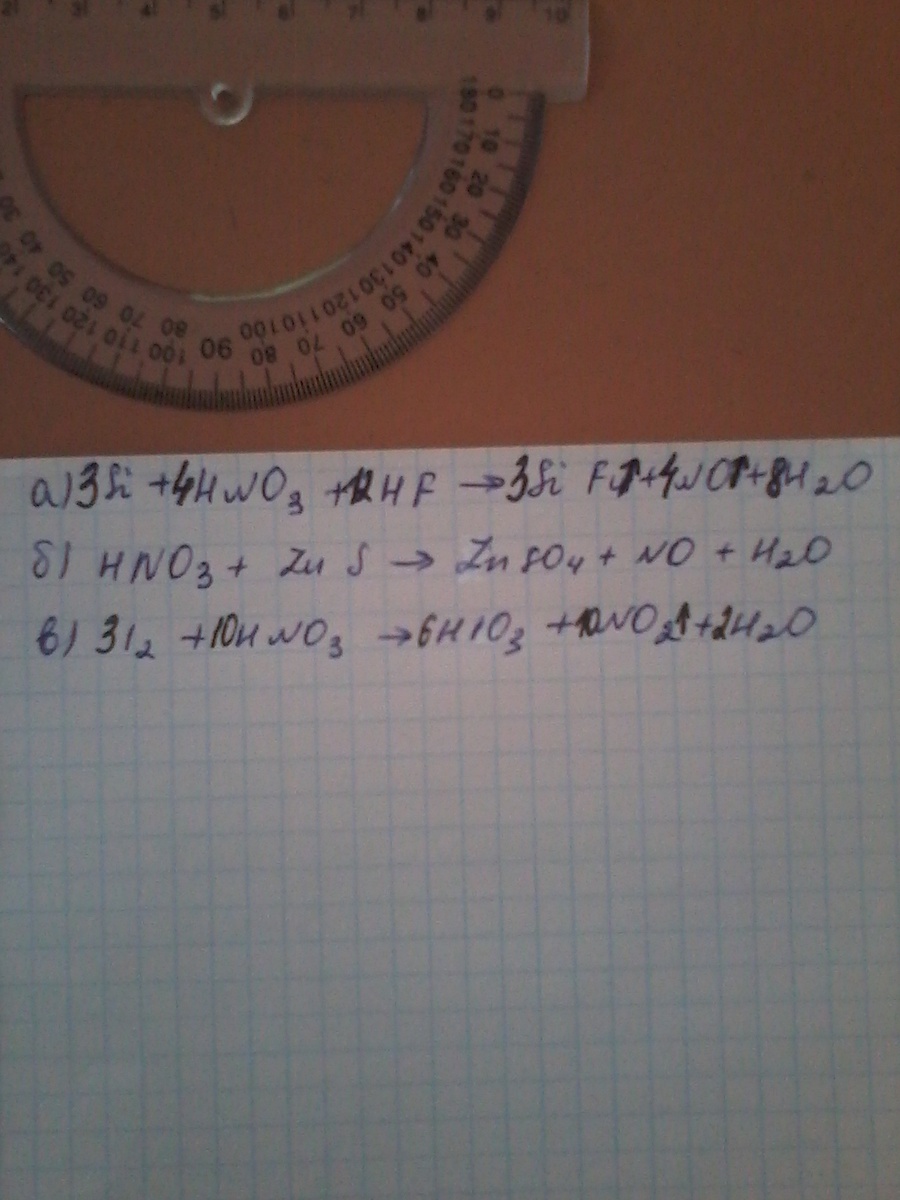 2 3 4 5 6 7 8 9 10
180 170 160 150 140 130 120 110 100 90 80 70 60 50 40 30
0 10 20 30 40 50 60 70 80 90 100 110 120 130 140
а) 3Si + 4HNO3 + 12HF → 3SiF4↑ + 4NO↑ + 8H2O
б) HNO3 + ZnS → ZnSO4 + NO + H2O
в) 3I2 + 10HNO3 → 6HIO3 + 10NO2↑ + 2H2O